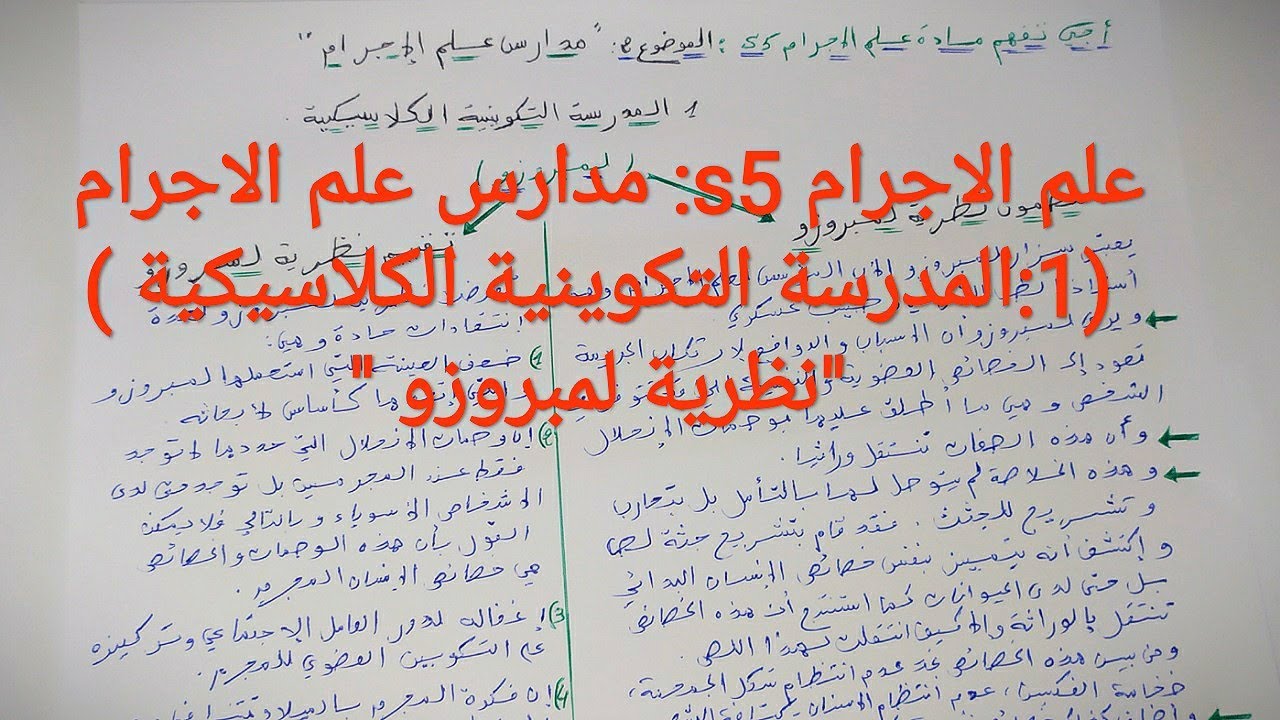 أجي نفهم مادة علم الإجرام S5: الموضوع 2: "مدارس علم الإجرام"
1 المدرسة التكوينية الكلاسيكية.
علم الاجرام s5: مدارس علم الاجرام
(1:المدرسة التكوينية الكلاسيكية )
"نظرية لمبروزو"
نظرية لمبروزو
ويرى لمبروزو أن الأسباب والدوافع لارتكاب الجريمة
تعود إلى الخصائص العضوية
الشخص وهي ما أطلق عليها بوصمات الإنحلال
وأن هذه الصفات تنتقل وراثيا.
وهذه الخلاصة لم يتوصل لها بالتأمل بل بتجارب
وتشريح للجثث. فقد قام بتشريح جثة لص
وإكتشف أنه يتميز بنفس خصائص الإنسان البدائي
بل حتى لدى الحيوانات كما استنتج أن هذه الخصائص
تنتقل بالوراثة وإلا كيف انتقلت لهذا اللص.
ومن بين هذه الخصائص نجد عدم انتظام شكل الجمجمة،
ضخامة الفكين، عدم انتظام الأسنان
نظرية لمبروزو
انتقادات حادة وهي:
1) ضعف العينة التي استعملها لمبروزو
كأساس لأبحاثه
2) إن وصمات الإنحلال التي حددها لا توجد
فقط عند المجرمين بل توجد حتى لدى
الأشخاص الأسوياء وبالتالي فلا يمكن
القول بأن هذه الوصمات والخصائص
هي خصائص الإنسان المجرم.
3) إغفاله لدور العامل الإجتماعي وتركيزه
على التكوين العضوي للمجرم.
4) إن فكرة المجرم بالميلاد